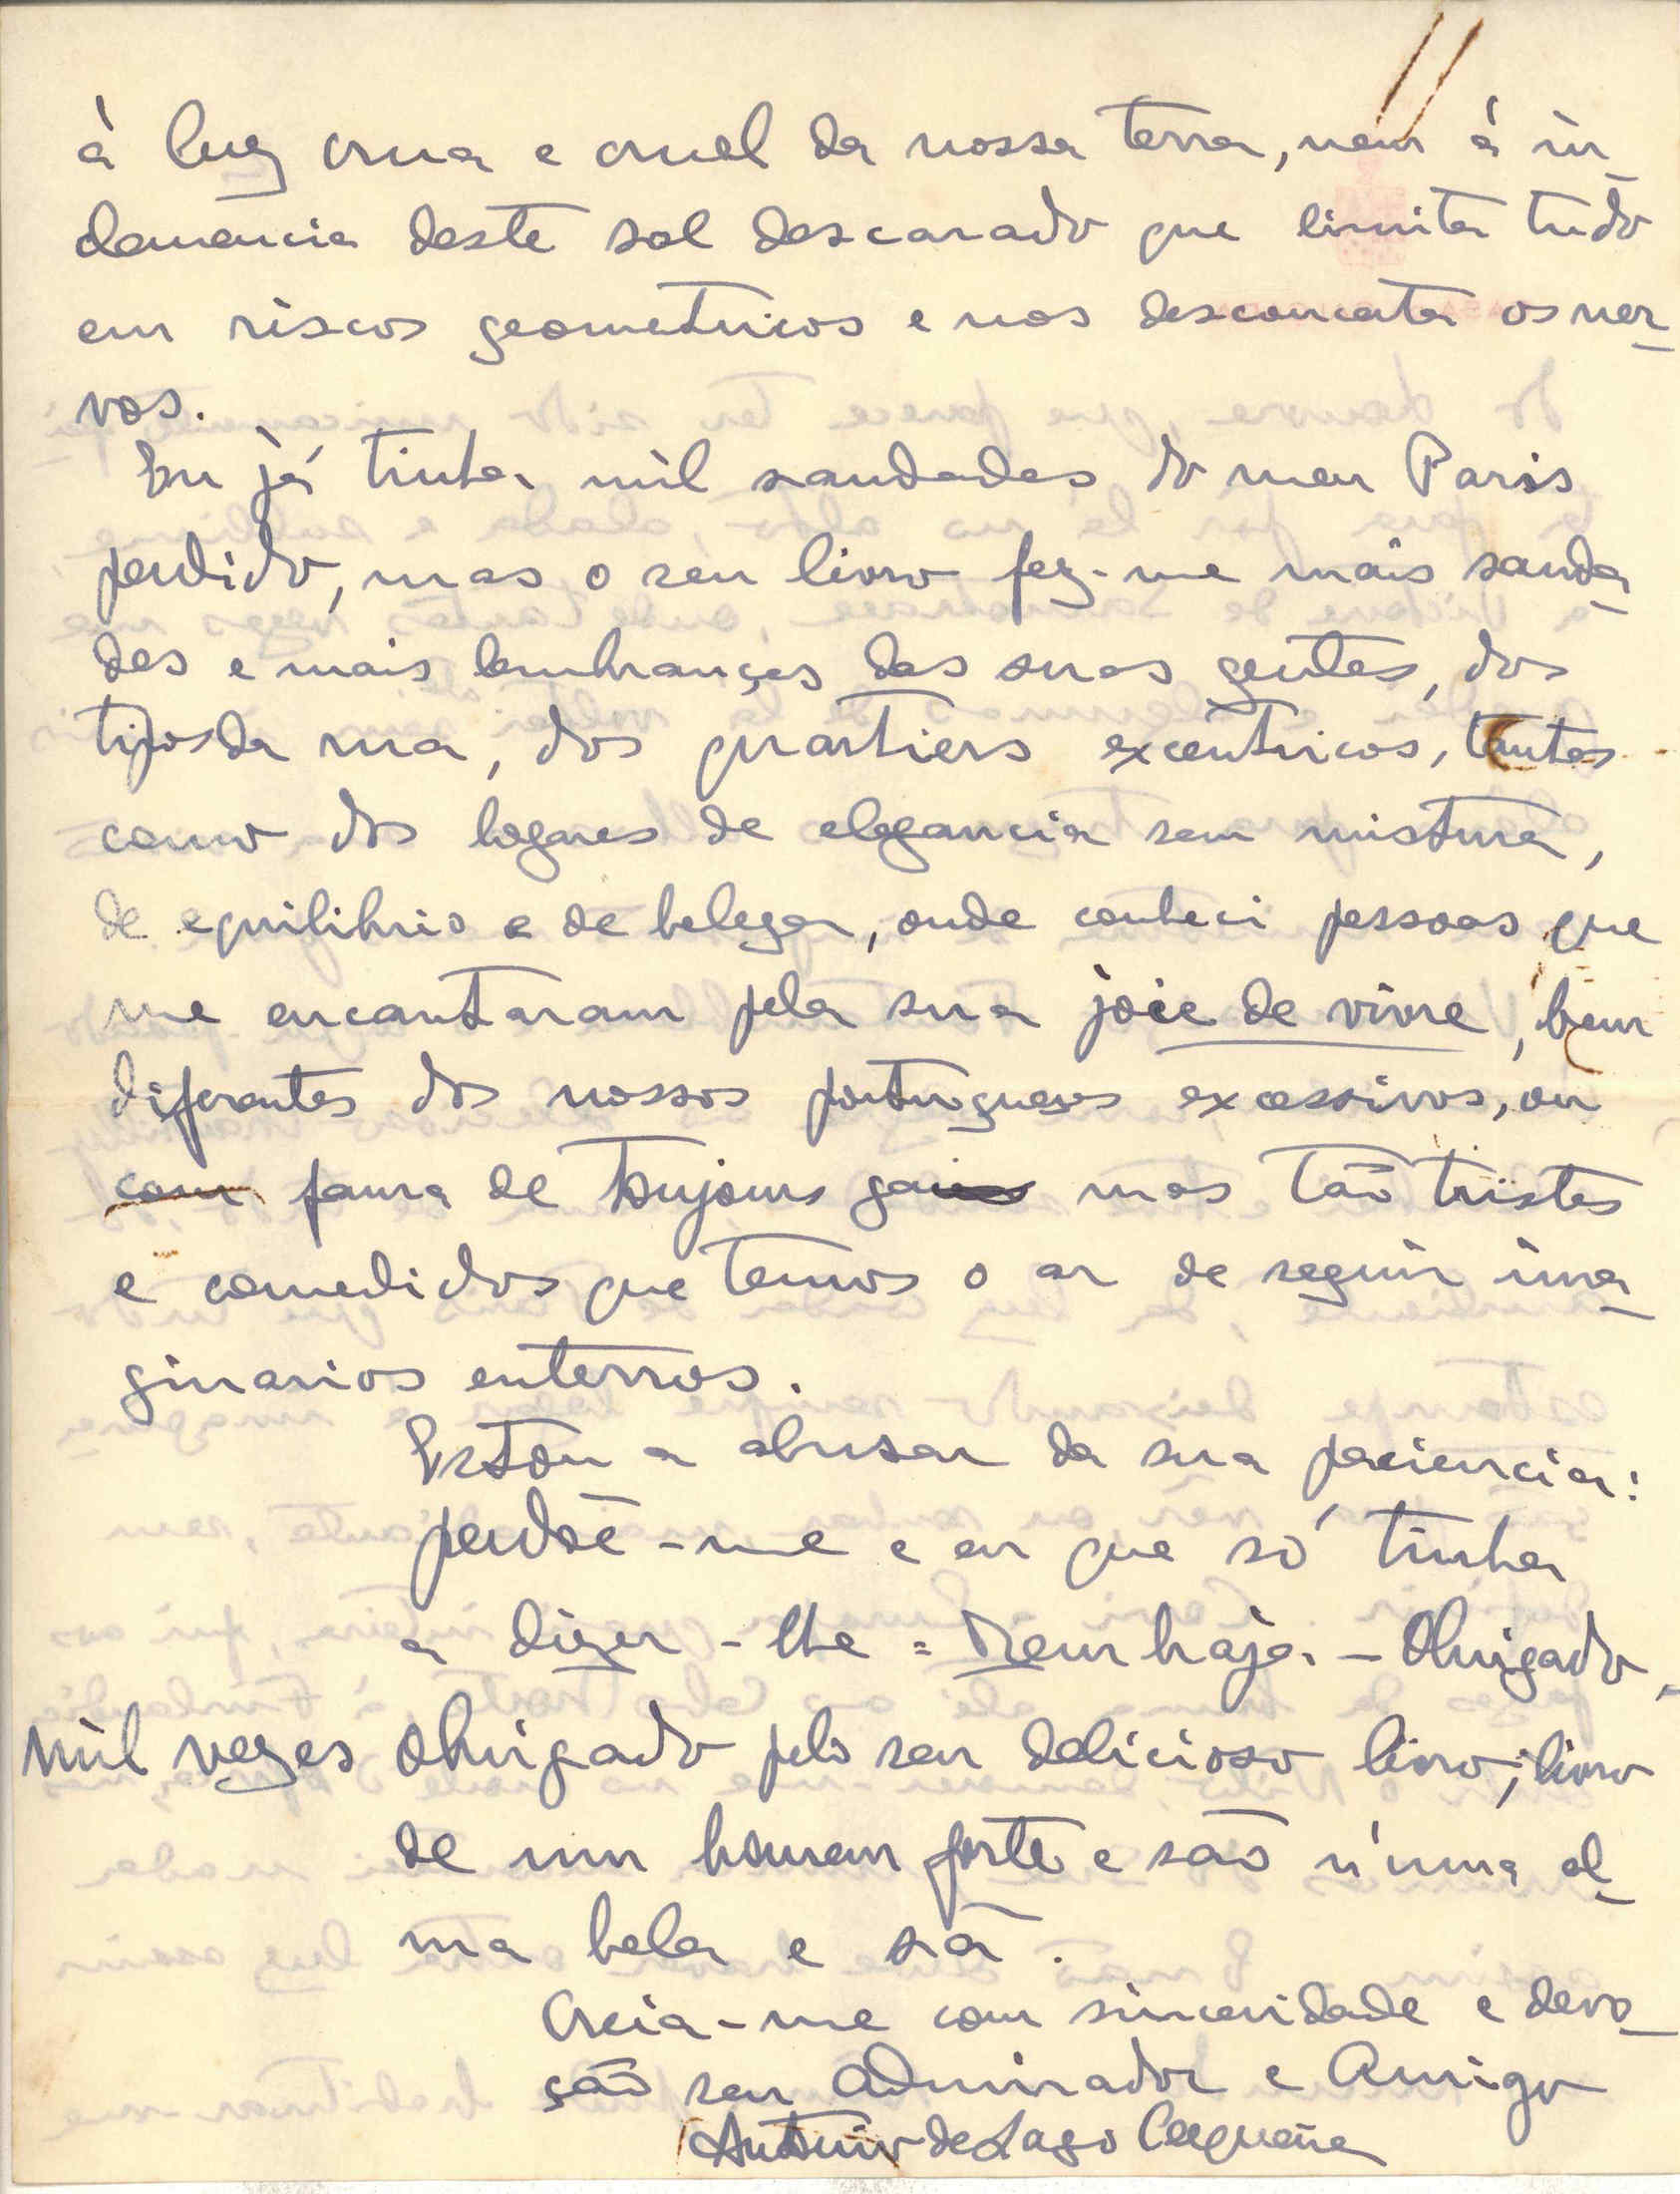 à luz crua e cruel da nossa terra, nem á in-
clemencia deste sol descarado que limita tudo
em riscos geometricos e nos desconcerta os ner-
vos.
Eu já tinha mil saudades do meu Paris
perdido, mas o seu livro fez-me mais sauda-
des e mais lembranças das suas gentes, dos
tipos da rua, dos quartiers excentricos, tantas
como dos logares de elegancia sem mistura,
de equilibrio e de beleza, onde conheci pessoas que
me encantaram pela sua joie de vivre, bem
diferentes dos nossos portuguezes excessivos, ou
com fama de toujours gais mas tão tristes
e comedidos que temos o ar de seguir ima-
ginarios enterros.
Estou a abusar da sua paciencia:
perdõe-me e eu que só tinha
a dizer-lhe = Bem haja. - Obrigado,
mil vezes obrigado pelo seu delicioso livro; livro
de um homem forte e são n'uma al-
ma bela e sã.
Creia-me com sinceridade e devo-
ção seu Admirador e Amigo
Antonio de Lago Cerqueira